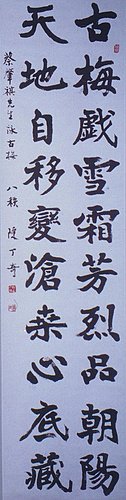 古梅戲雪霜芳烈品朝陽
天地自移變滄桑心底藏
蔡肇祺先生詠古梅 八秩 陳丁奇